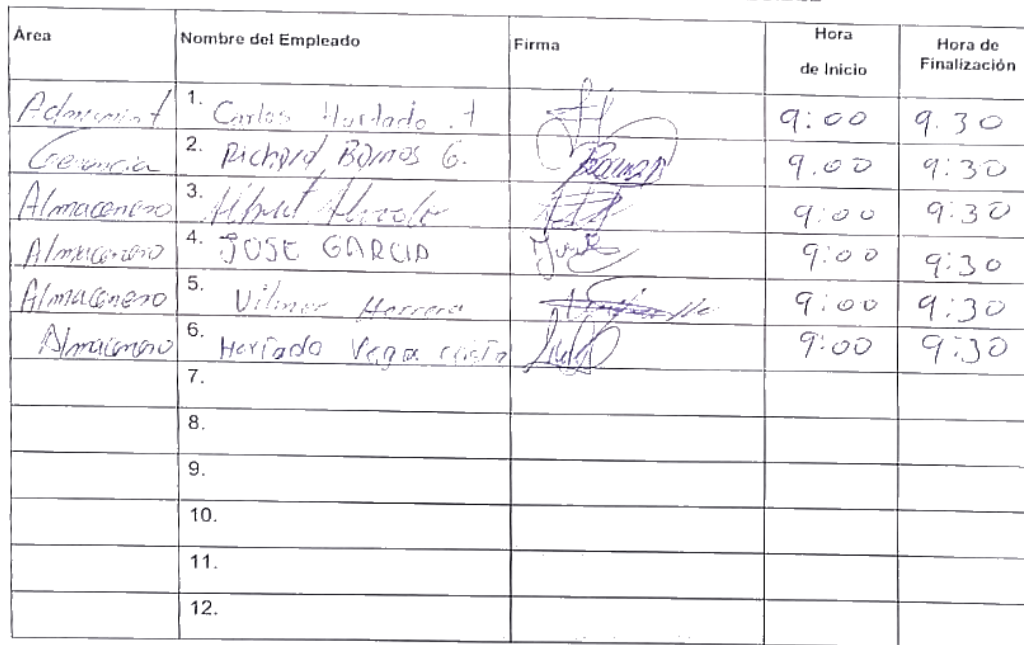 Área Nombre del Empleado Firma Hora de Inicio Hora de Finalización
Administ 1. Carlos Hurtado . t 9:00 9.30
Gerencia 2. Richard Barrios G. 9.00 9:30
Almacenero 3. 9:00 9:30
Almacenero 4. JOSE GARCIA 9:00 9:30
Almacenero 5. Vilmer Herrera 9:00 9:30
Almacenero 6. Hurtado Vega 9:00 9:30
7.
8.
9.
10.
11.
12.